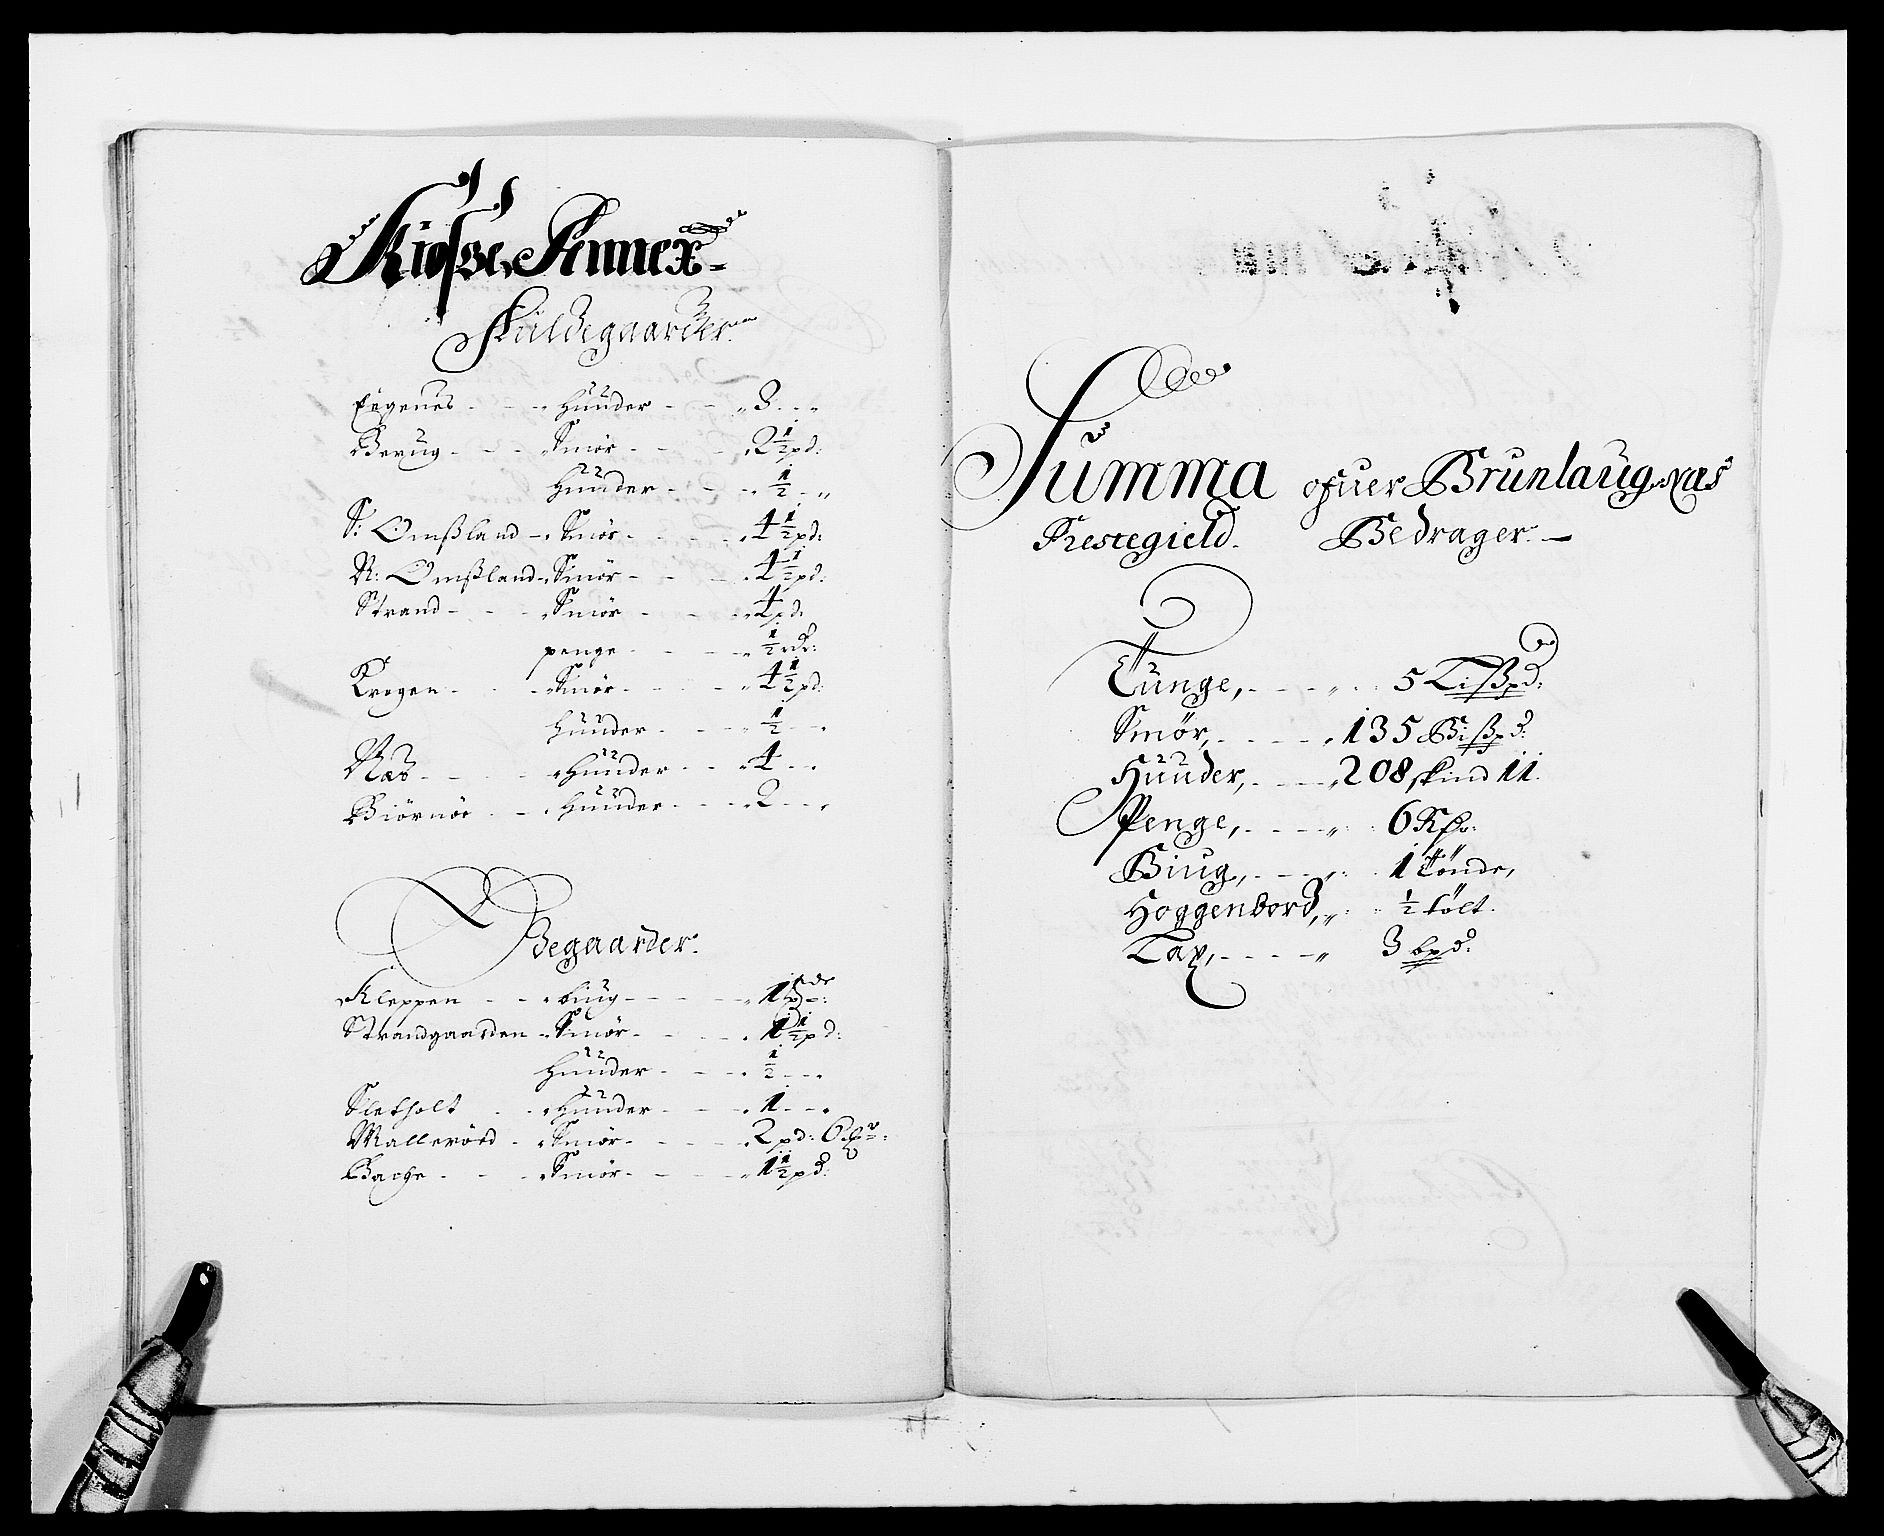 Kiose Annex
Fuldegaarder
Eegenes - - Huuder - - 3 - -
Berug - - - Smør - - - 2 1/2 pd:
Huuder - - - 1/2 - -
S: Omßland - Smør - - - 4 1/2 pd:
N: Omßland - Smør - - - 4 1/2 pd:
Strand - - - Smør - - - 4 pd:
penge - - - 1/2 rdr:
Krogen - - - Smør - - - 4 1/2 pd:
Huuder - - - 1/2 - -
Næs - - - Huuder - - 4 - -
Biørnøe - - Huuder - - - 2 - -
Ødegaarder.
Kleppen - - biug - - - 1
Strandgaarden - Smør - - - 1 1/2 pd:
Huuder - - - 1/2 - - -
Sletholt - - Huuder - - - 1 - - -
Mallerød - Smør - - - 2 pd: 6
Bache - - - Smør - - - 1 1/2 pd:
Summa ofuer Brunlaugnæs
Prestegield Bedrager. —
Tunge, - - - 5 Lißpd:
Smør, - - - 135 Bißpd:
Huuder, - - - 208 skind 11.
Penge, - - - 6
Biug, - - - 1 Tønde,
Hoggenbord, 1/2 tølt.
Lax, - - - - 3 bpd: